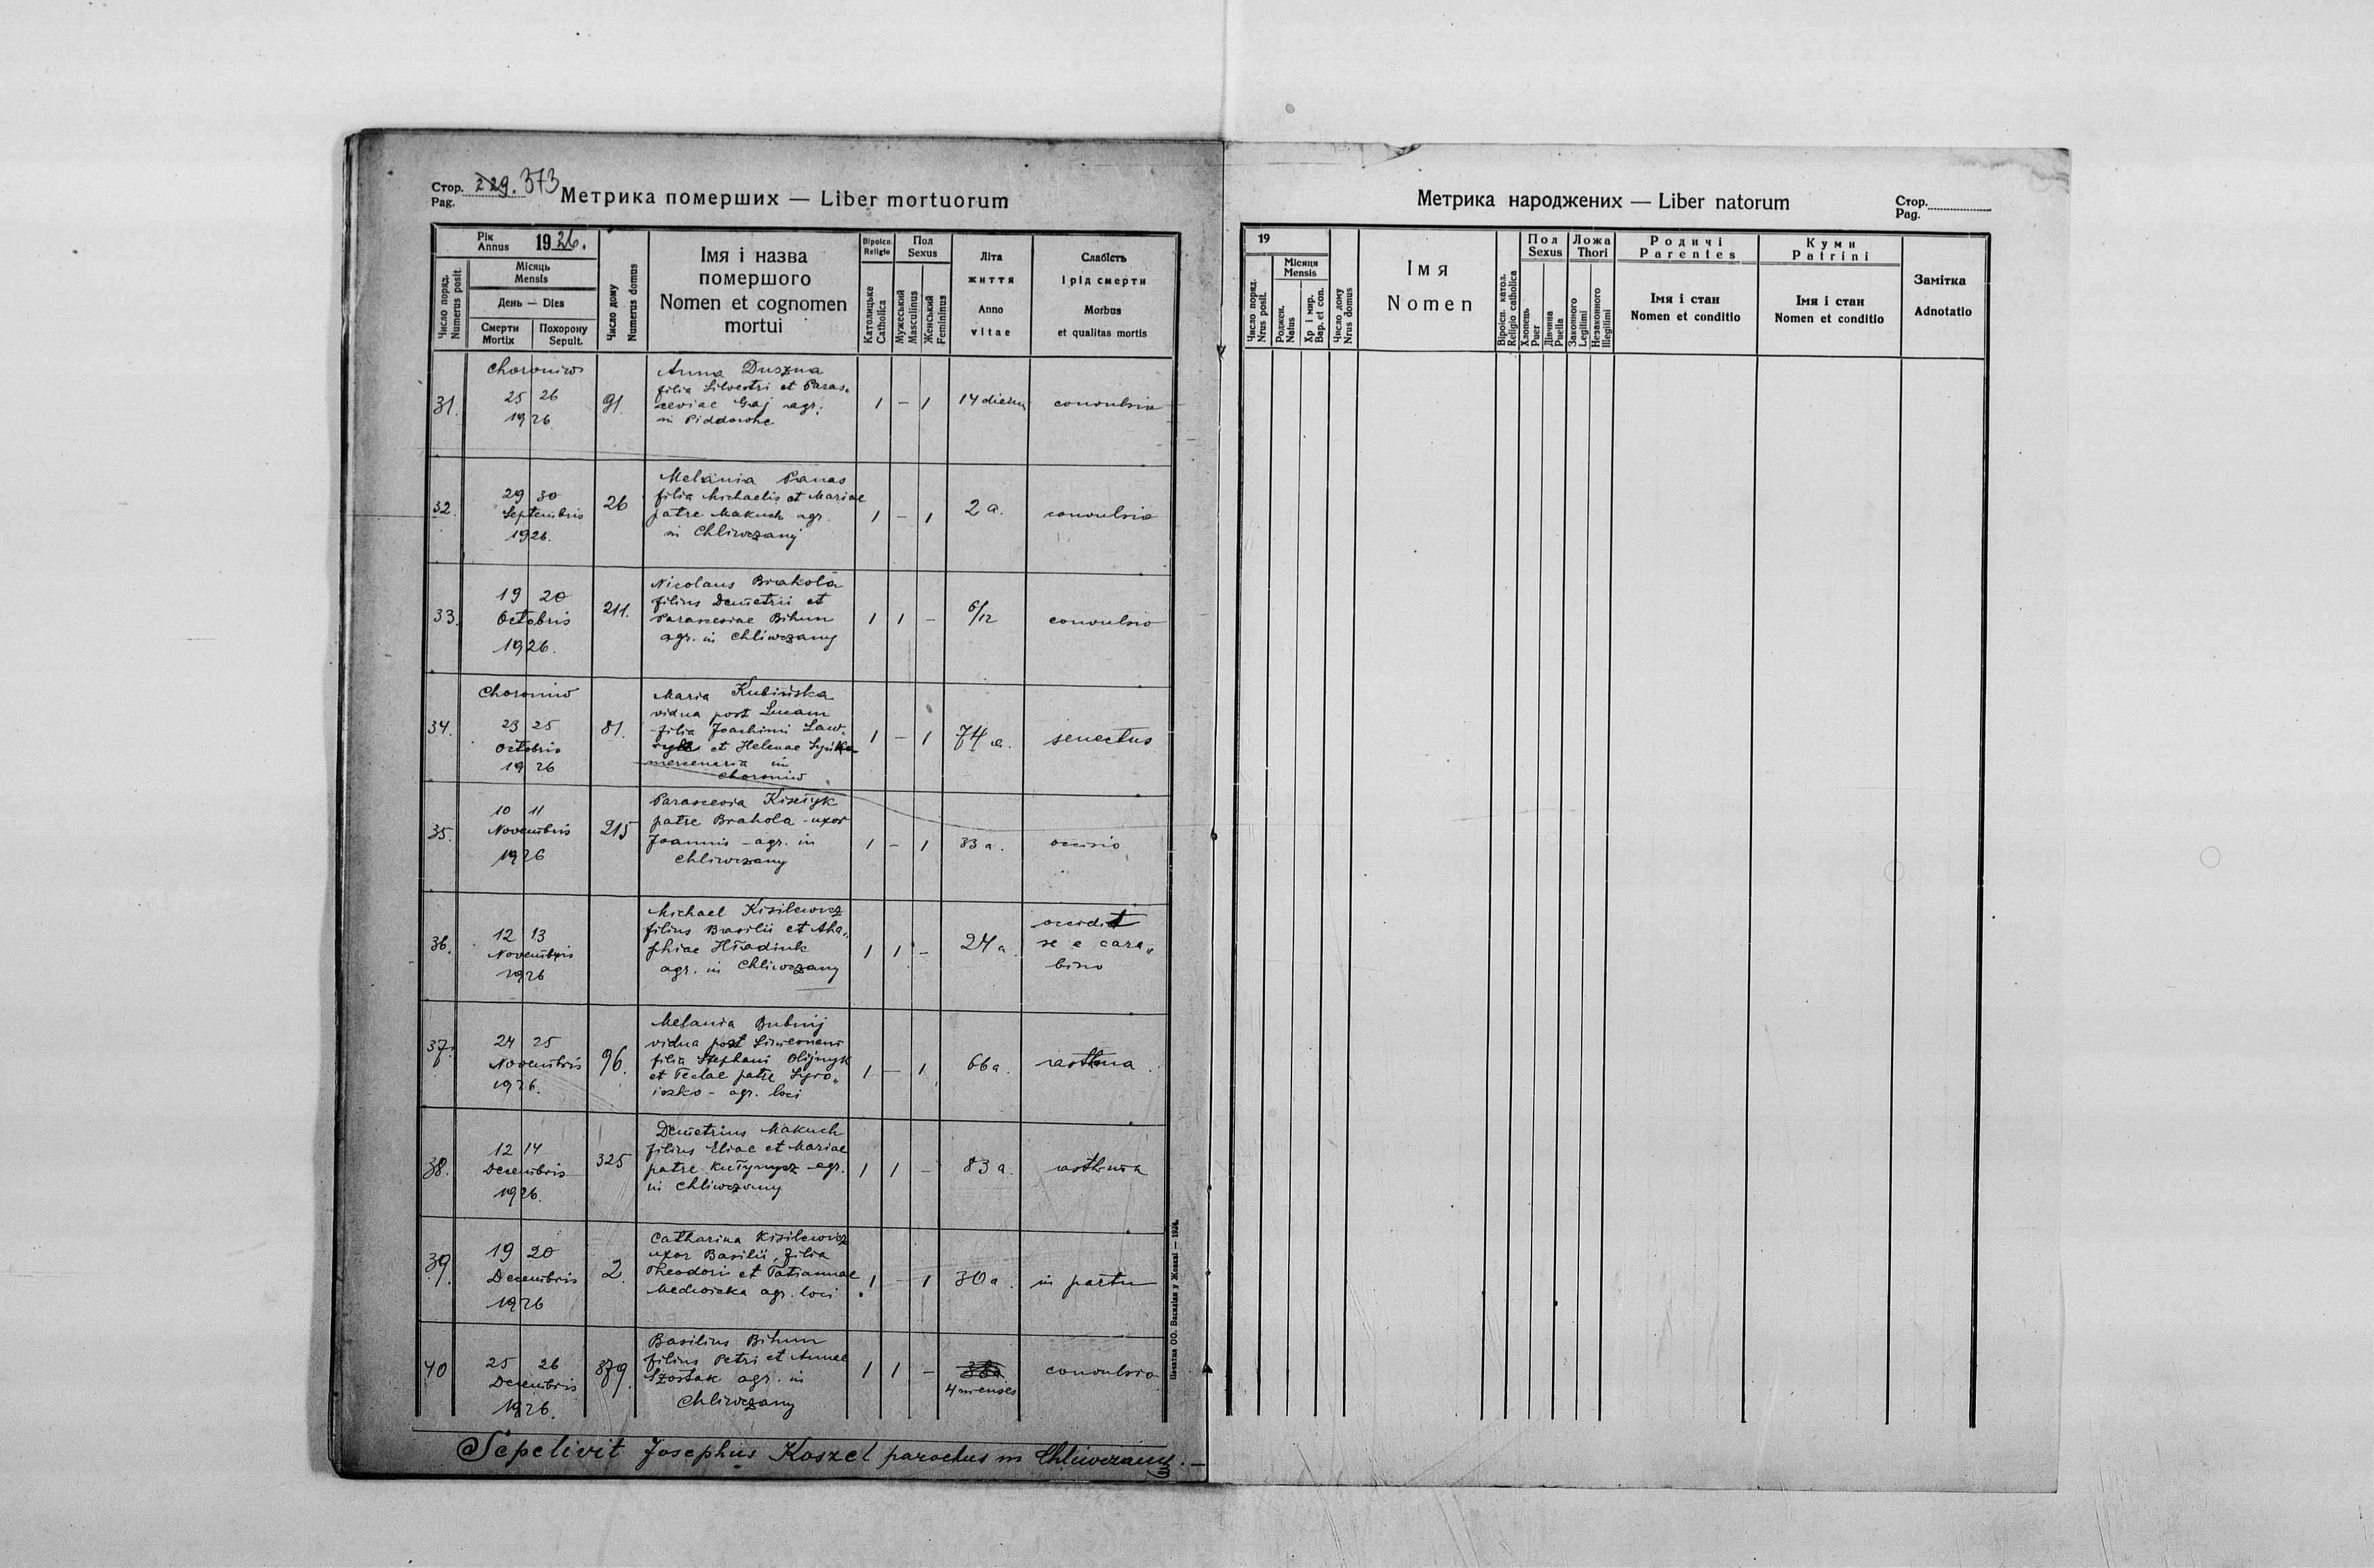 Стор. 229. 373
Pag.
Метрика померших — Liber mortuorum
Рік
Annus 1926.
Число поряд.
Numerus posit.
Місяць
Mensis
День — Dies
Смерти
Mortix
Похорону
Sepult.
Число дому
Numerus domus
Імя і назва
помершого
Nomen et cognomen
mortui
Віроісп.
Religio
Католицьке
Catholica
Пол
Sexus
Мужеський
Masculinus
Женський
Femininus
Літа
життя
Anno
vitae
Слабість
і рід смерти
Morbus
et qualitas mortis
31.
Choroniw
25 26
1926
91.
Anna Duszna
filia Silvestri et Paras-
ceviae Gaj agr.
in
1 – 1
14 dierum
convulsio
32.
29 30
Septembris
1926.
26
Melania Panas
filia Michaelis et Mariae
patre Makuch agr.
in Chliwczany
1 – 1
2 a.
convulsio
33.
19 20
Octobris
1926.
211.
Nicolaus Brahola
filius Demetrii et
Parasceviae Bihun
agr. in Chliwczany
1 1 –
6/12
convulsio
34.
Choroniw
23 25
Octobris
1926
81.
Maria Kubińska
vidua post Lucam
filia Joachimi
et Helenae
mercenaria in
Choroniw
1 – 1
74 a.
senectus
35.
10 11
Novembris
1926
215
Parascevia
patre Brahola - uxor
Joannis - agr. in
Chliwczany
1 – 1
33 a.
occisio
36.
12 13
Novembris
1926
Michael Kisilewicz
filius Basilii et Aha-
phiae Hładiuk
agr. in Chliwczany
1 1 –
24 a
occidit
se e cara-
bino
37.
24 25
Novembris
1926.
96.
Melania Bubnij
vidua post Simeonem
filia Stephani Olijnyk
et Teclae patre
agr. loci
1 – 1
66 a.
asthma
38.
12 14
Decembris
1926.
325
Demetrius Makuch
filius Eliae et Mariae
patre agr.
in Chliwczany
1 1 –
83 a.
asthma
39.
19 20
Decembris
1926
2.
Catharina Kisilewicz
uxor Basilii, filia
Theodori et Tatiannae
agr. loci
1 – 1
30 a.
in partu
40
25 26
Decembris
1926.
379.
Basilius Bihun
filius Petri et Annae
Szostak agr. in
Chliwczany
1 1 –
4 menses
convulsio
Sepelivit Josephus Koszel parochus in Chliwczany. —
Печатня ОО. Василіян у Жовкві — 192
Метрика народжених — Liber natorum
Стор.
Pag.
19
Число поряд.
Nrus posit.
Місяця
Mensis
Роджен.
Natus
Хр і мир.
Bap. et con.
Число дому
Nrus domus
Імя
Nomen
Віроісп. катол.
Religio catholica
Пол
Sexus
Хлопець
Puer
Дівчина
Puella
Ложа
Thori
Законного
Legitimi
Незаконного
Illegitimi
Родичі
Parentes
Імя і стан
Nomen et conditio
Куми
Patrini
Імя і стан
Nomen et conditio
Замітка
Adnotatio